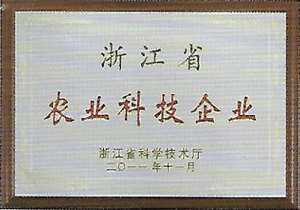 浙江省
农业科技企业
浙江省科学技术厅
二〇一一年十一月